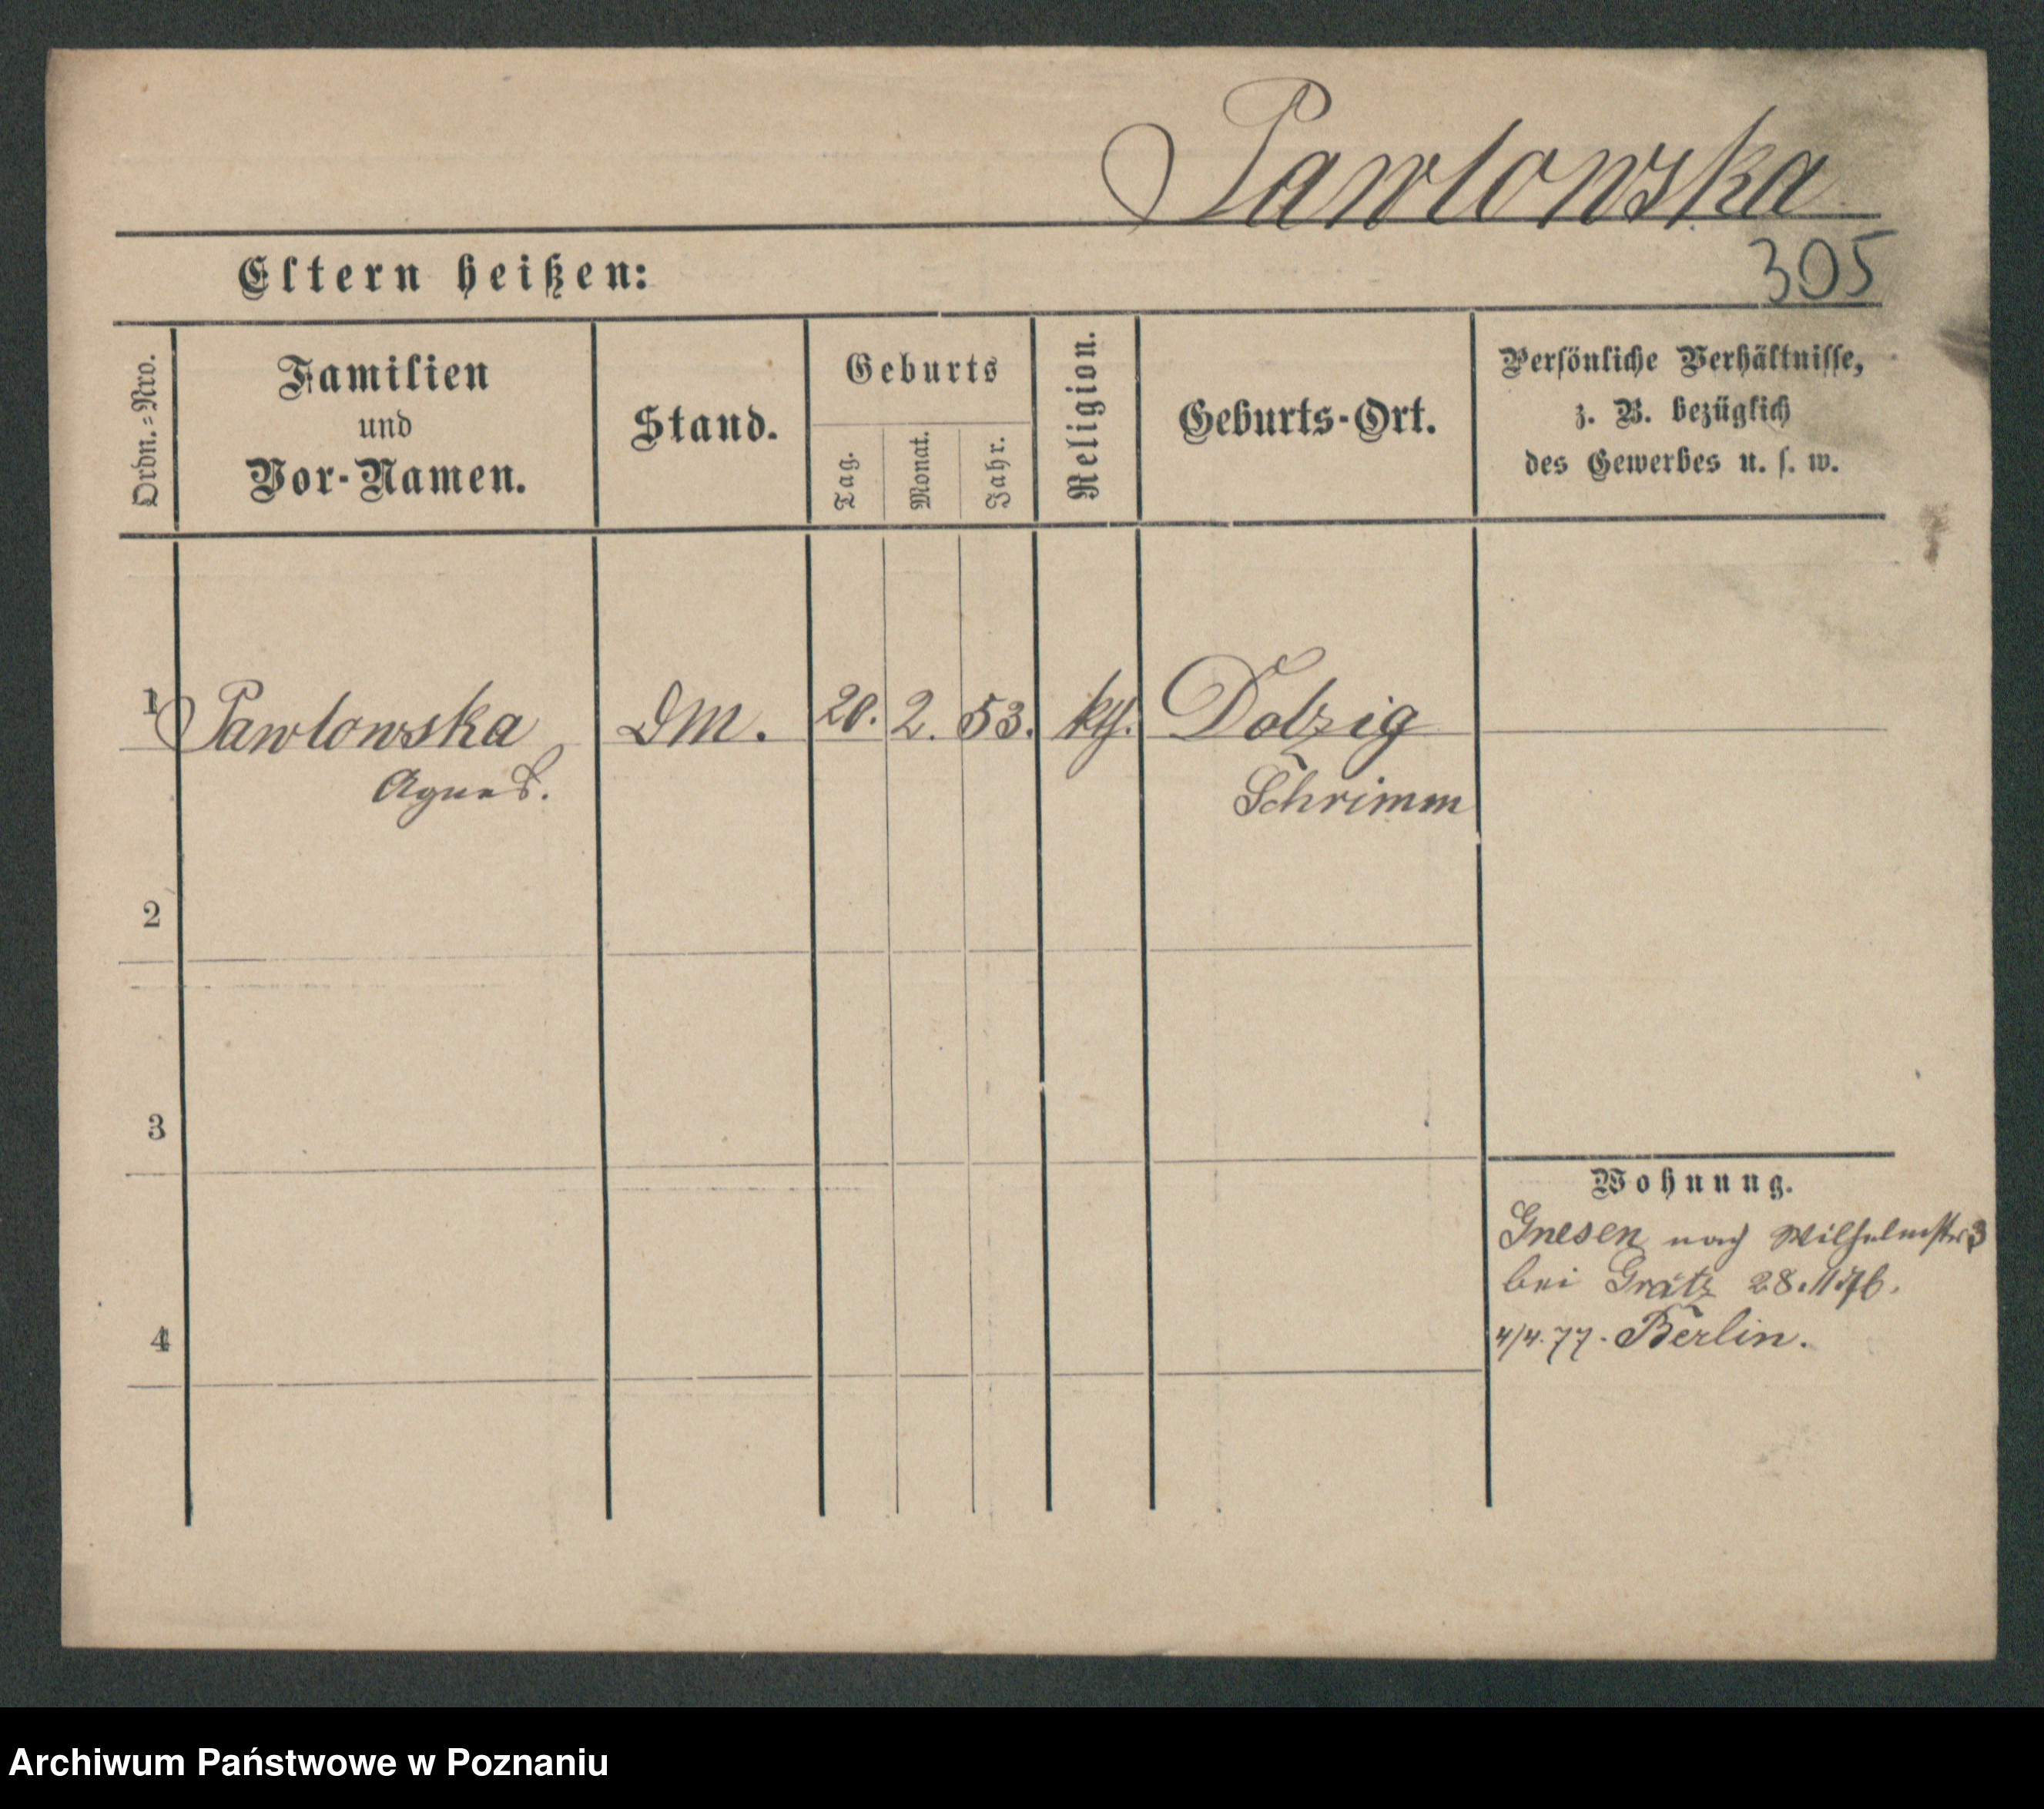 Pawlowska
Eltern heißen:
305
Ordn.=Nro.
Familien
und
Vor-Namen.
Stand.
Geburts
Tag.
Monat.
Jahr.
Religion.
Geburts-Ort.
Persönliche Verhältnisse,
z. B. bezüglich
des Gewerbes u. s. w.
1 Pawlowska DM. 20. 2. 53. kth. Dolzig
Agnes. Schrimm
2
3
Wohnung.
Gnesen nach Wilhelmstr 3
bei Grätz 28.11.76.
4/4.77. Berlin.
4
Archiwum Państwowe w Poznaniu